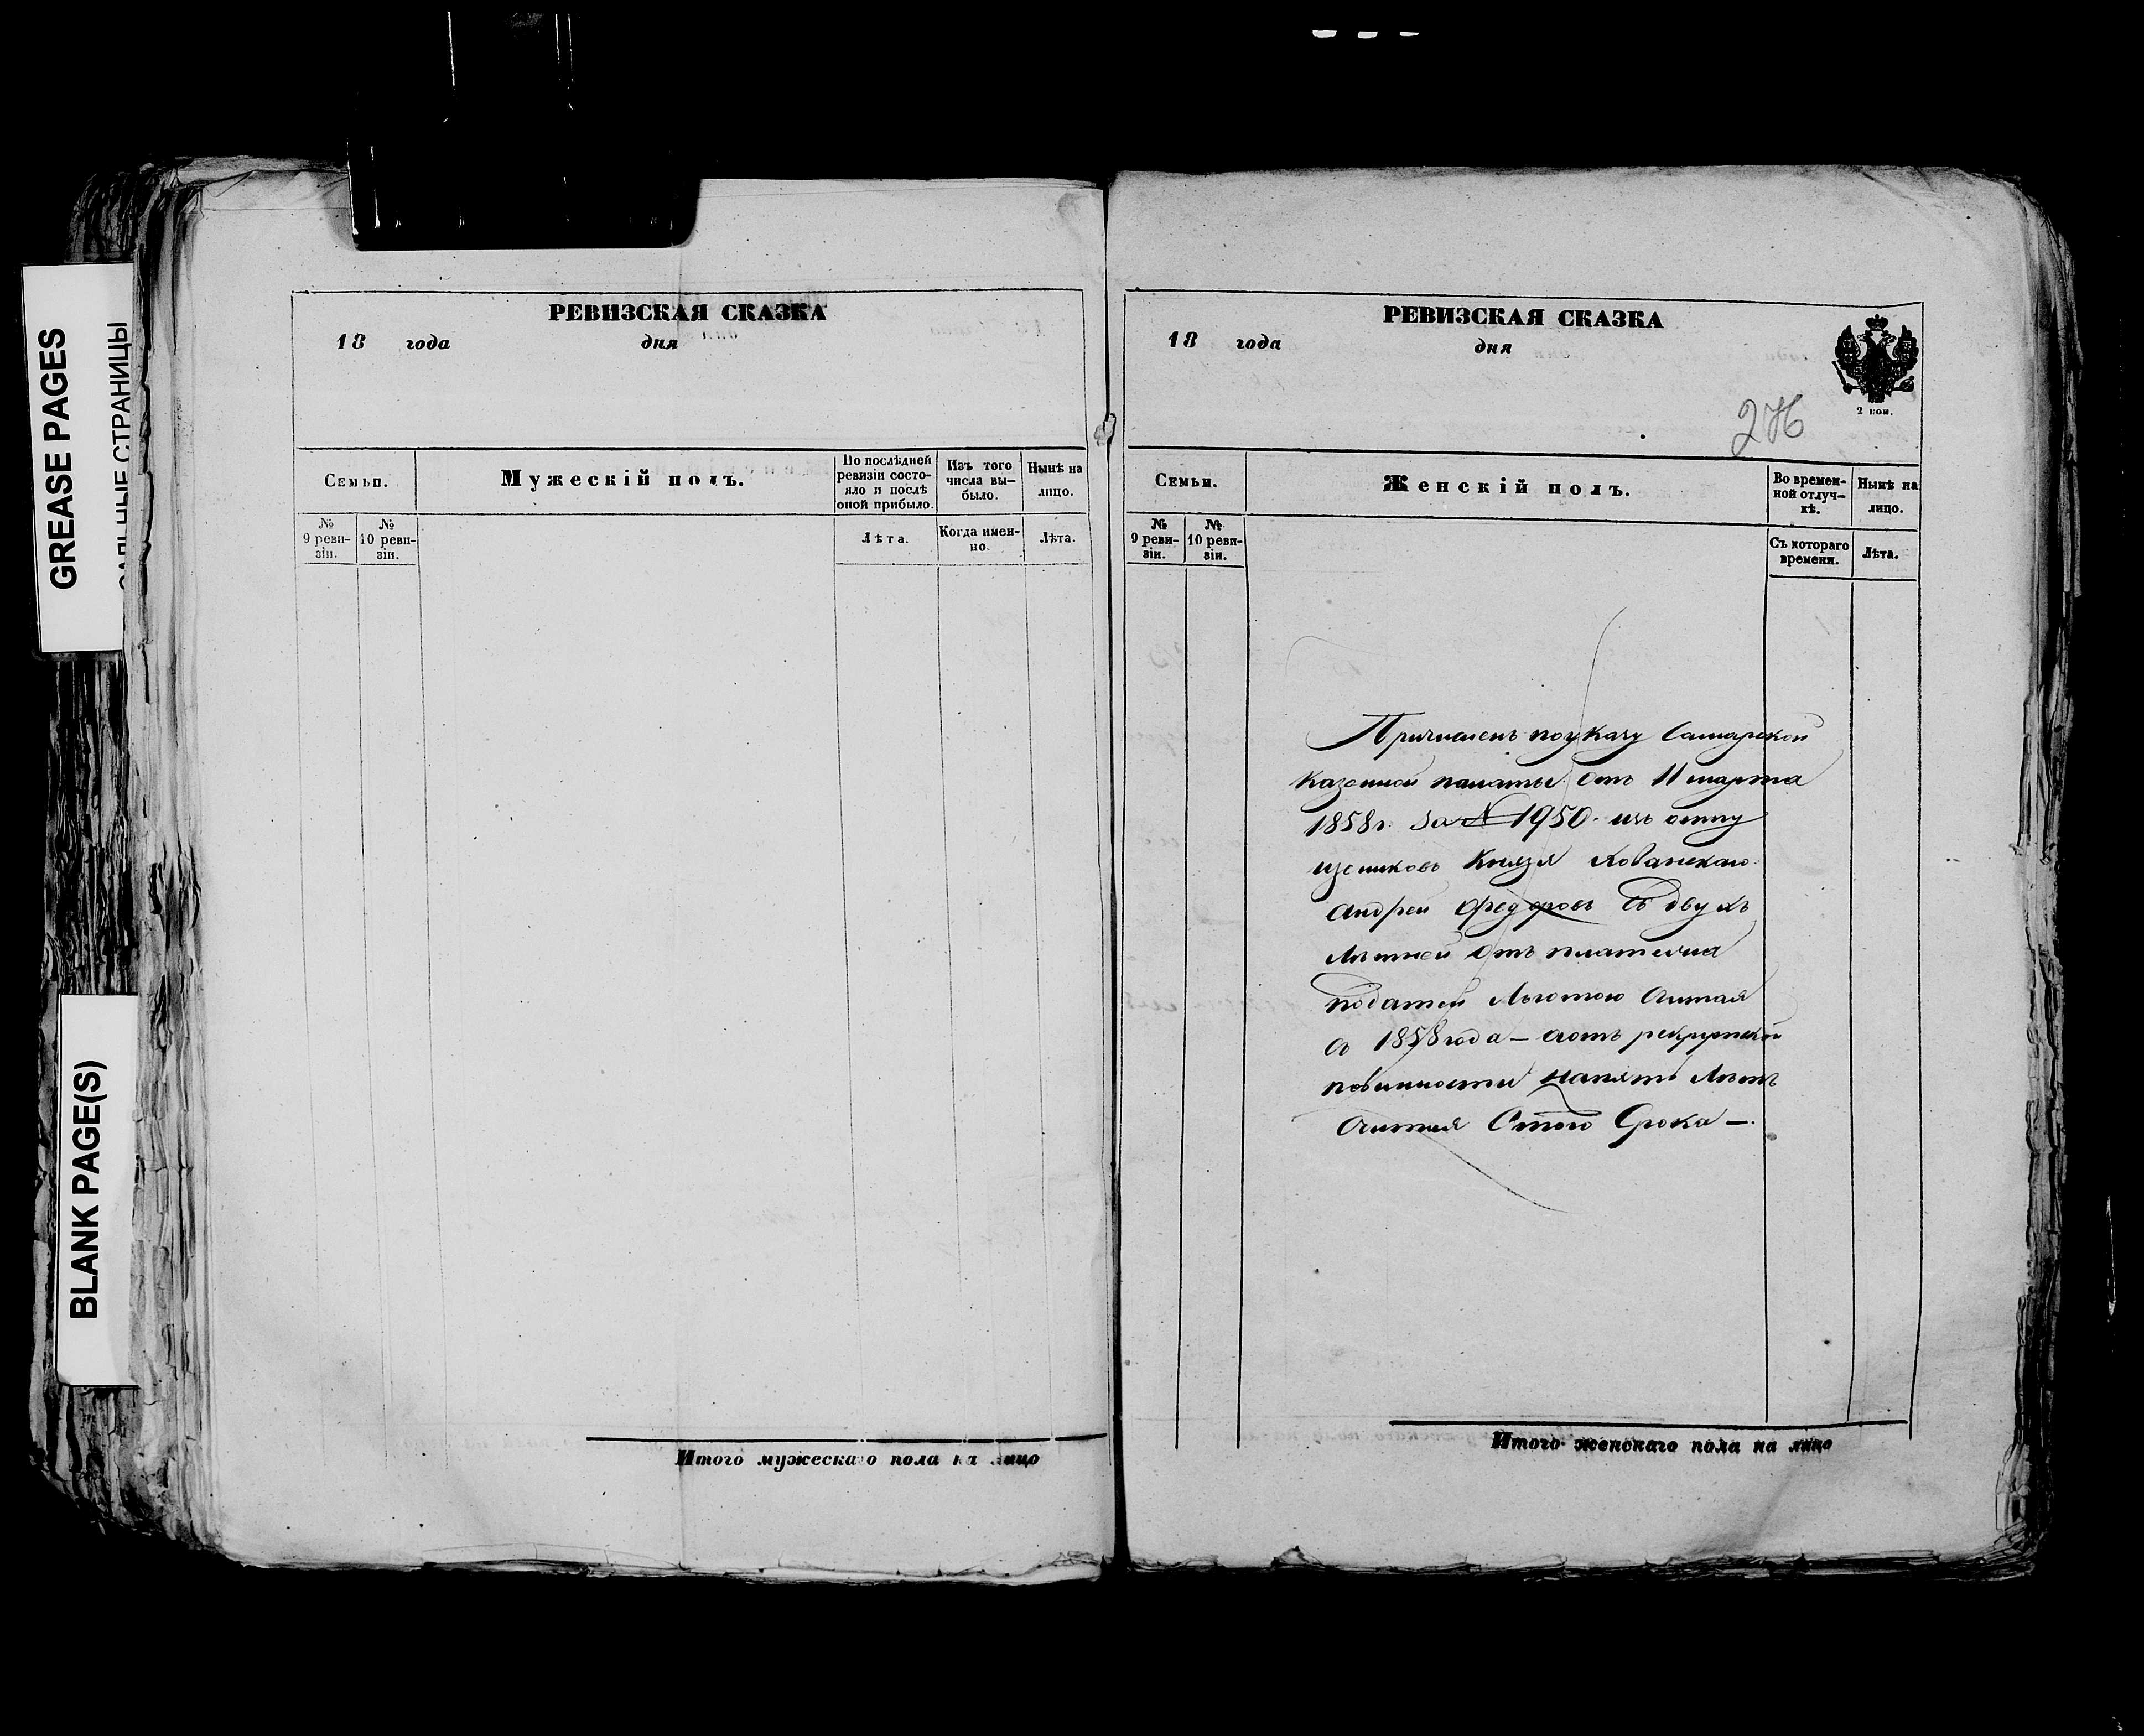 GREASE PAGES
САЛЬНЫЕ СТРАНИЦЫ
BLANK PAGE(S)
РЕВИЗСКАЯ СКАЗКА
18 года дня
Семьи.
Мужескій полъ.
По послѣдней ревизіи состо-
яло и послѣ
оной прибыло.
Изъ того
числа вы-
было.
Нынѣ на
лицо.
№
9 реви-
зіи.
№
10 реви-
зіи.
Лѣта.
Когда имен-
но.
Лѣта.
Итого мужескаго пола на лицо
РЕВИЗСКАЯ СКАЗКА
18 года дня
2 коп.
276
Семьи.
Женскій полъ.
Во времен-
ной отлуч-
кѣ.
Нынѣ на
лицо.
№
9 реви-
зіи.
№
10 реви-
зіи.
Съ котораго
времени.
Лѣта.
Причисленъ по указу Самарской
Казенной палаты отъ 11 марта
1858г. за № 1950. изъ отпу
щенниковъ Князя Хованскаго
Андрей Федоровъ Съ двухъ
лѣтней отъ платежа
податей льготою считая
съ 1858 года — аотъ рекрутской
повинности напять лѣтъ
считая Стого Срока —.
Итого женскаго пола на лицо